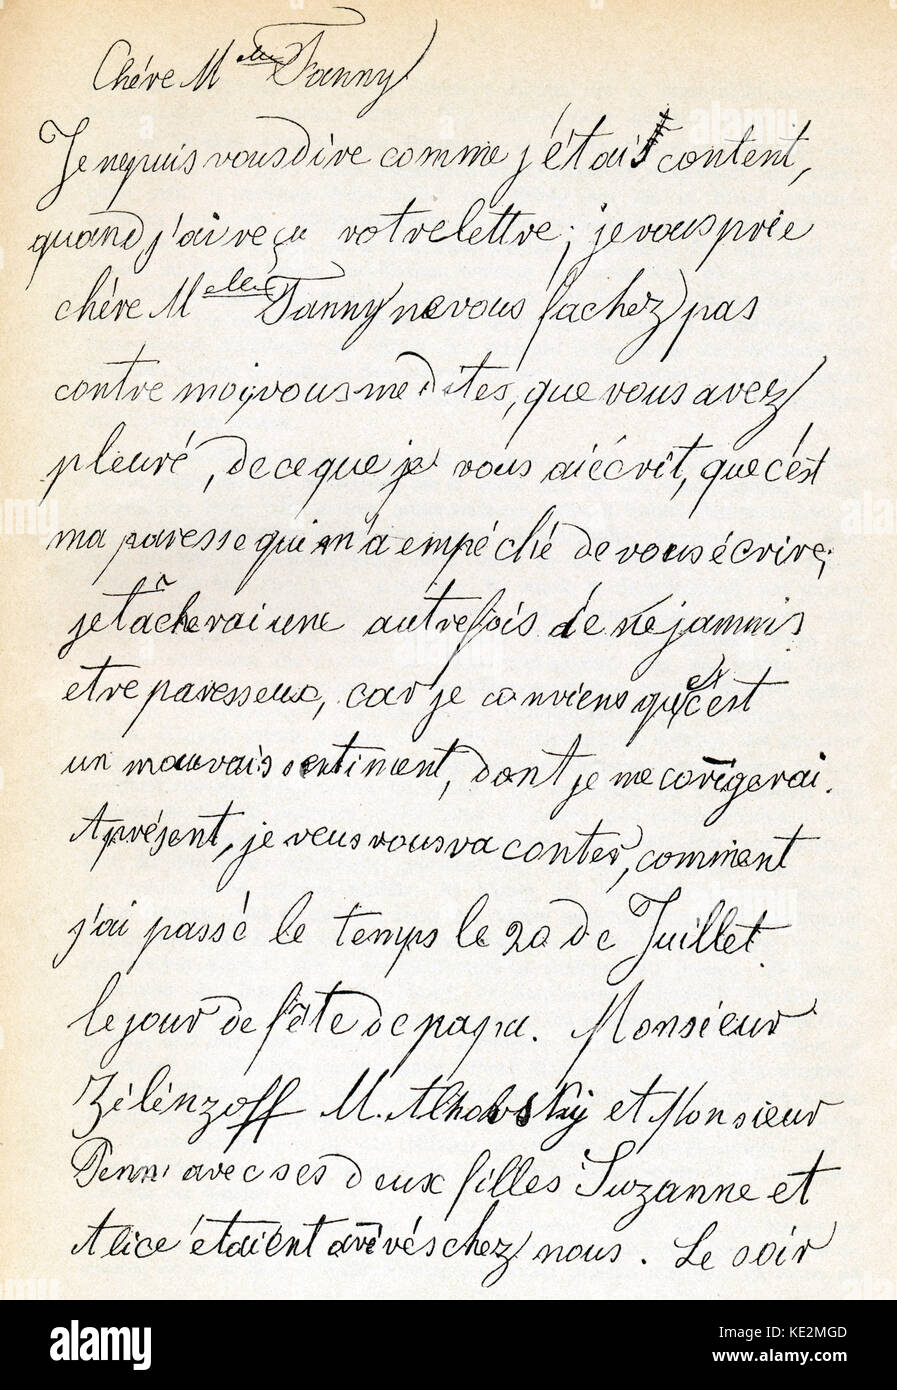 Chère M elle Fanny
Je ne puis vous dire comme j'étais content,
quand j'ai reçu votre lettre; je vous prie
chère M elle Fanny ne vous fachez pas
contre moi; vous me dites, que vous avez
pleuré, de ce que je vous ai écrit, que c'est
ma paresse qui m'a empéché de vous écrire;
je tâcherai une autre fois de ne jammis
etre paresseux, car je conviens que c'est
un mauvais sentiment, dont je me corigerai.
Aprésent, je veus vous va conter, comment
j'ai passé le temps le 20 de Juillet
le jour de fête de papa. Monsieur
Zélénzoff M. et Monsieur
Penn avec ses deux filles Suzanne et
Alice étaient arivés chez nous. Le soir
alamy
Image ID: KE2MGD
www.alamy.com